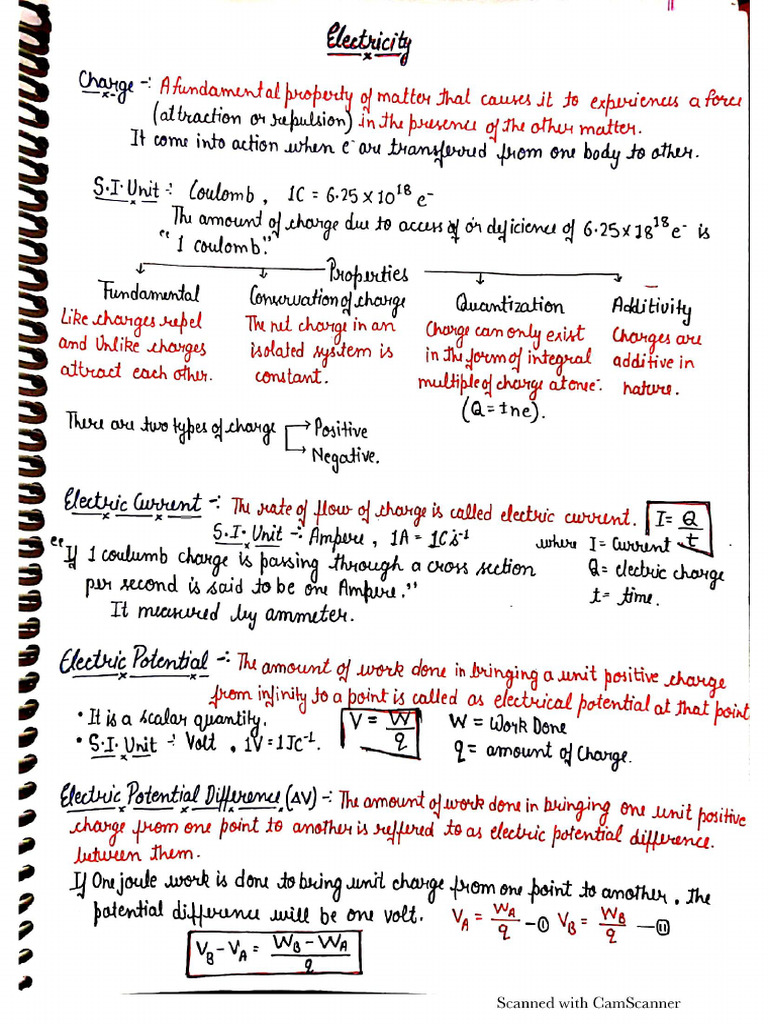 Electricity
Charge -: A fundamental property of matter that causes it to experiences a force
(attraction or repulsion) in the presence of the other matter.
It come into action when e⁻ are transferred from one body to other.
S.I. Unit -: Coulomb, 1C = 6.25 x 10¹⁸ e⁻
The amount of charge due to access of or deficience of 6.25 x 18¹⁸ e⁻ is
"1 coulomb."
Properties
Fundamental Conservation of charge Quantization Additivity
Like charges repel The net charge in an Charge can only exist Charges are
and Unlike charges isolated system is in the form of integral additive in
attract each other. constant. multiple of charge at one e⁻. nature.
(Q = ± ne).
There are two types of charge → Positive
→ Negative.
Electric Current -: The rate of flow of charge is called electric current. I = Q/t
S.I. Unit -: Ampere, 1A = 1Cs⁻¹ where I = Current
"If 1 coulumb charge is passing through a cross section Q = electric charge
per second is said to be one Ampere." t = time.
It measured by ammeter.
Electric Potential -: The amount of work done in bringing a unit positive charge
from infinity to a point is called as electrical potential at that point
• It is a scalar quantity. V = W/q W = Work Done
• S.I. Unit -: Volt, 1V = 1JC⁻¹. q = amount of Charge.
Electric Potential Difference (ΔV) -: The amount of work done in bringing one unit positive
charge from one point to another is reffered to as electric potential difference
between them.
If One joule work is done to bring unit charge from one point to another. The
potential difference will be one volt. V_A = W_A/q —(I) V_B = W_B/q —(II)
V_B - V_A = W_B - W_A/q
Scanned with CamScanner